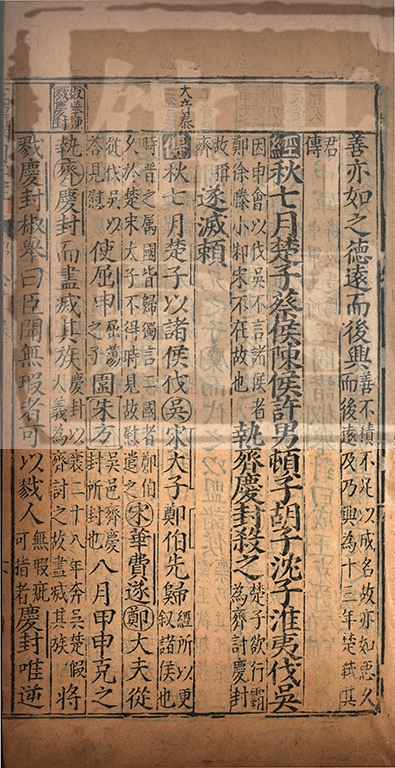 善亦如之德遠而後興善不積不足以成名故亦如惡久而後遠及乃興為十三年楚弒其
君傳
經秋七月楚子蔡侯陳侯許男頓子胡子沈子淮夷伐吳
因申會以伐吳不言諸侯者鄭徐滕小邾宋不在故也執齊慶封殺之楚子欲行霸為齊討慶封
故稱齊遂滅賴
傳秋七月楚子以諸侯伐吳宋大子鄭伯先歸經所以更叙諸侯也
時晉之属國皆歸獨言二國者鄭伯久於楚宋大子不得時見故慰遣之宋華費遂鄭大夫從
從伐吳以荅見慰使屈申屈蕩之子圍朱方吳邑齊慶封所封也八月甲申克之
執齊慶封而盡滅其族慶封以襄二十八年奔吳楚假大義為齊討之故盡滅其族將
戮慶封椒舉曰臣聞無瑕者可以戮人無瑕疵可指者慶封唯逆